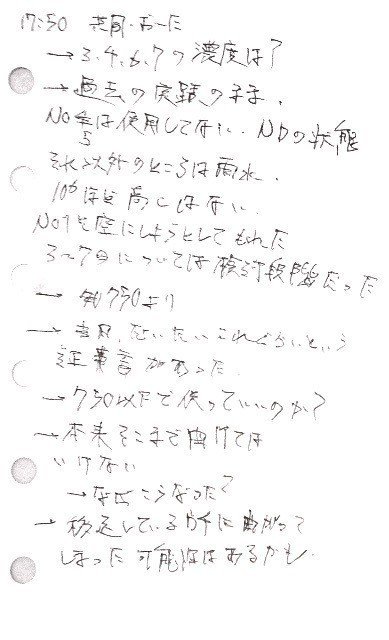 17:50 共同・おーた
→ 3,4,6,7の濃度は?
→ 過去の実績のまま.
No
5は使用してない. NDの状態
それ以外のところは雨水.
10⁶ほど高くはない.
No1も空にしようとしてもれた
3〜7については検討段階だった
→ 750より
→ だいたいこれぐらいという
証言があった.
→ 750以下で使っていいのか?
→ 本来そこまで曲げては
いけない
→ なぜこうなった?
→ 移送している時に曲がって
しまった可能性はあるかも.